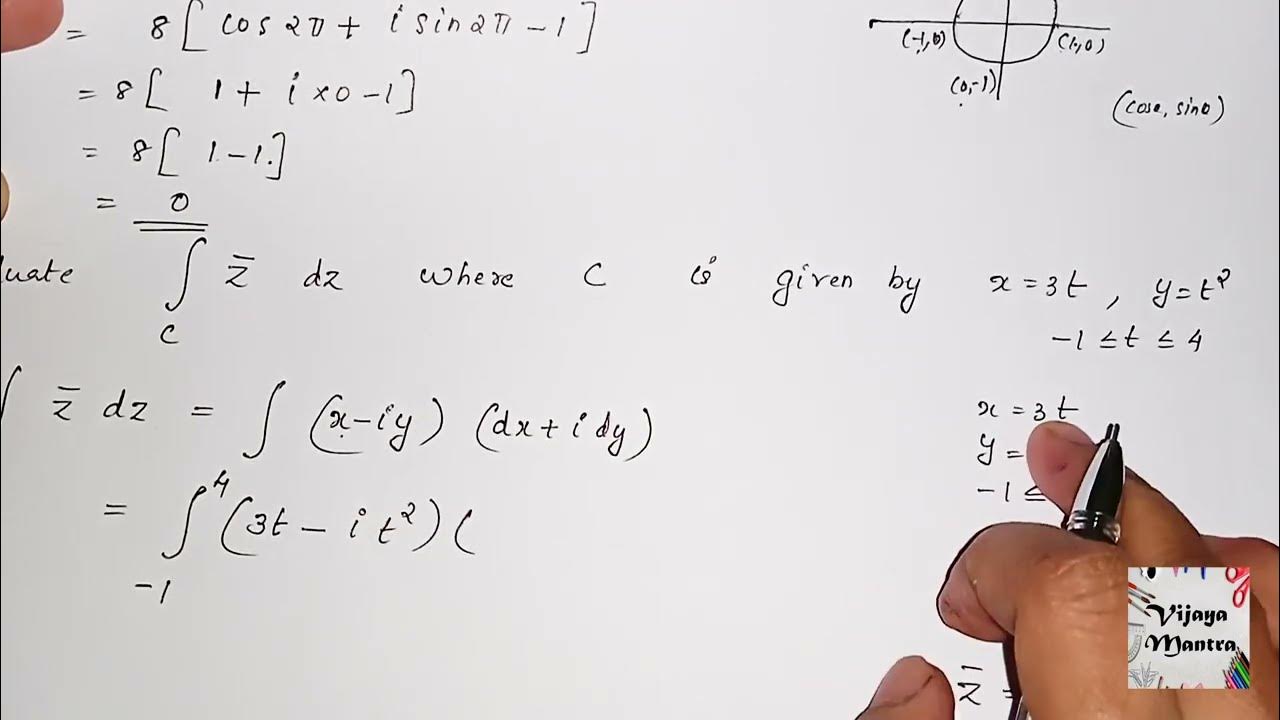 = 8 [ cos 2π + i sin 2π - 1 ]
= 8 [ 1 + i × 0 - 1 ]
= 8 [ 1 - 1 ]
= 0
(-1,0) (1,0)
(0,-1)
(cosθ, sinθ)
uate ∫ z̄ dz where C is given by x = 3t , y = t²
C
-1 ≤ t ≤ 4
∫ z̄ dz = ∫ (x - iy) (dx + i dy)
= ∫₋₁⁴ (3t - i t²) (
x = 3t
y =
-1 ≤
z̄ =
Vijaya
Mantra